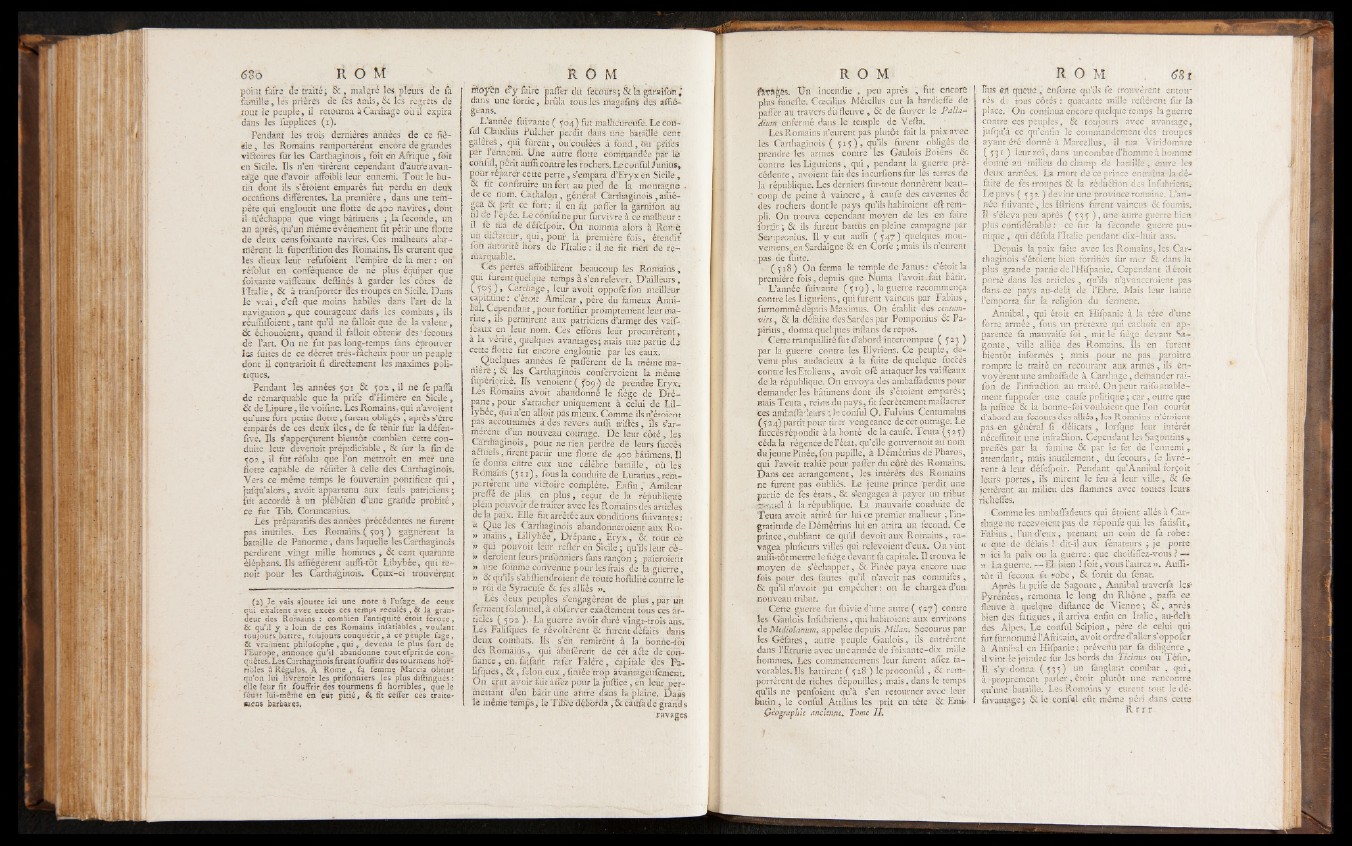 680 R O M
point faire de traité; &, malgré les pleurs de sa
famille, les prières de ses amis, & les regrets de
tout le peuple, il retourna à Carthage où il expira
dans les supplices (2).
Pendant les trois dernières années de ce siè-
cle, les Romains remportèrent encore de grandes
victoires sur les Carthaginois, soit en Afrique, soit
en Sicile. Ils n'en tirèrent cependant d'autre avan-
tage que d'avoir affoibli leur ennemi. Tout le bu-
tin dont ils s'étoient emparés fut perdu en deux
occasions différentes. La première, dans une tem-
pête qui engloutit une flotte de 400 navires, dont
il n'échappa que vingt bâtimens; la seconde, un
an après, qu'un même événement fit périr une flotte
de deux cens soixante navires. Ces malheurs alar-
mèrent la superstition des Romains. Ils crurent que
les dieux leur refusoient l'empire de la mer: on
résolut en conséquence de ne plus équiper que
soixante vaisseaux destinés à garder les côtes de
l'Italie, & à transporter des troupes en Sicile. Dans
le vrai, c'est que moins habiles dans l'art de la
navigation, que courageux dans les combats, ils
réussissoient, tant qu'il ne falloit que de la valeur,
& échouoient, quand il falloit obtenir des secours
de l'art. On ne fut pas long-temps sans éprouver
les suites de ce décret très-fâcheux pour un peuple
dont il contrarioit si directement les maximes poli-
tiques.
Pendant les années 501 & 502, il ne se passa
de remarquable que la prise d'Himère en Sicile,
& de Lipare, île voisine. Les Romains, qui n'avoient
qu'une fort petite flotte, furent obligés, après s'être
emparés de ces deux îles, de se tenir sur la défen-
sive. Ils s'apperçurent bientôt combien cette con-
duite leur devenoit préjudiciable, & sur la fin de
502, il fut résolu que l'on mettroit en mer une
flotte capable de résister à celle des Carthaginois.
Vers ce même temps le souverain pontificat qui,
jusqu'alors, avoit appartenu aux seuls patriciens;
fut accordé à un plébéien d'une grande probité,
ce fut Tib. Coruncanius.
Les préparatifs des années précédentes ne furent
pas inutiles. Les Romains (503) gagnèrent la
bataille de Panorme, dans laquelle les Carthaginois
perdirent vingt mille hommes, & cent quarante
éléphans. Ils assiégèrent aussi-tôt Libybée, qui te-
noit pour les Carthaginois. Ceux-ci trouvèrent
(2) Je vais ajouter ici une note à l'usage de ceux
qui exaltent avec excès ces temps reculés, & la gran-
deur des Romains: combien l'antiquité étoit féroce,
& qu'il y a loin de ces Romains insatiables, voulant
toujours battre, toujours conquérir, à ce peuple sage,
& vraiment philosophe, qui, devenu le plus fort de
l'Europe, annonce qu'il abandonne tout esprit de con-
quêtes. Les Carthaginois firent souffrir des tourmens hor-
ribles à Régulus. A Rome, sa femme Marcia obtint
qu'on lui livreroit les prisonniers les plus distingués:
elle leur fit souffrir des tourmens si horribles, que le
sénat lui-même en eut pitié, & fit cesser ces traite-
mens barbares.
R O M
moyen d'y faire passer du secours; & la garnison,
dans une sortie, brûla tous les magasins des assié-
geans.
L'année suivante (504) fut malheureuse. Le con-
sul Claudius Pulcher perdit dans une bataille cent
galères, qui furent, ou coulées à fond, ou prises
par l'ennemi. Une autre flotte commandée par le
consul, périt aussi contre les rochers. Le consul Junius,
pour réparer cette perte, s'empara d'Eryx en Sicile,
& fit construire un fort au pied de la montagne
de ce nom. Carthalon, général Carthaginois, assié-
gea & prit ce fort: il en fit passer la garnison au
fil de l'épée. Le consul ne put survivre à ce malheur:
il se tua de désespoir. On nomma alors à Rome
un dictateur, qui, pour la première fois, étendit
son autorité hors de l'Italie: il ne fit rien de re-
marquable.
Ces pertes affoiblirent beaucoup les Romains,
qui furent quelque temps à s'en relever. D'ailleurs,
(505), Carthage, leur avoit opposé son meilleur
capitaine: c'étoit Amilcar, père du fameux Anni-
bal. Cependant, pour fortifier promptement leur ma-
rine, ils permirent aux patriciens d'armer des vais-
seaux en leur nom. Ces efforts leur procurèrent,
à la vérité, quelques avantages; mais une partie de
cette flotte fut encore engloutie par les eaux.
Quelques années se passèrent de la même ma-
nière; & les Carthaginois conservoient la même
supériorité. Ils venoient (509) de prendre Eryx.
Les Romains avoit abandonné le siège de Dré-
pane, pour s'attacher uniquement à celui de Lil-
lybée, qui n'en alloit pas mieux. Comme ils n'étoient
pas accoutumés à des revers aussi tristes, ils s'ar-
mèrent d'un nouveau courage. De leur côté, les
Carthaginois, pour ne rien perdre de leurs succès
actuels, firent partir une flotte de 400 bâtimens. Il
se donna entre eux une célèbre bataille, où les
Romains (511), sous la conduite de Lutatius, rem-
portèrent une victoire complète. Enfin, Amilcar
pressé de plus en plus, reçut de la république
plein pouvoir de traiter avec les Romains des articles
de la paix. Elle fut arrêtée aux conditions suivantes:
« Que les Carthaginois abandonneroient aux Ro-
» mains, Lillybée, Drépane, Eryx, & tout ce
» qui pouvoit leur rester en Sicile; qu'ils leur cé-
» deroient leurs prisonniers sans rançon; paieroient
» une somme convenue pour les frais de la guerre,
» & qu'ils s'abstiendroient de toute hostilité contre le
» roi de Syracuse & ses alliés ».
Les deux peuples s'engagèrent de plus, par un
serment solemnel, à observer exactement tous ces ar-
ticles (502). La guerre avoit duré vingt-trois ans.
Les Falisques se révoltèrent & furent défaits dans
deux combats. Ils s'en remirent à la bonne-foi
des Romains, qui abusèrent de cet acte de con-
fiance, en faisant raser Falère, capitale des Fa-
lisques, &, selon eux, située trop avantageusement.
On crut avoir fait assez pour la justice, en leur per-
mettant d'en bâtir une autre dans la plaine. Dans
le même temps, le Tibre déborda, & causa de grands
ravages
R O M
ravages. Un incendie, peu après, fut encore
plus funeste. Cœcilius Métellus eut la hardiesse de
passer au travers du fleuve, & de sauver le Palla-
dium enfermé dans le temple de Vesta.
Les Romains n'eurent pas plutôt fait la paix avec
les Carthaginois (515), qu'ils furent obligés de
prendre les armes contre les Gaulois Boiens &
contre les Liguriens, qui, pendant la guerre pré-
cédente, avoient fait des incursions sur les terres de
la république. Les derniers sur-tout donnèrent beau-
coup de peine à vaincre, à cause des cavernes &
des rochers dont le pays qu'ils habitoient est rem-
pli. On trouva cependant moyen de les en faire
sortir; & ils furent battus en pleine campagne par
Sempronius. Il y eut aussi (547) quelques mou-
vemens en Sardaigne & en Corse; mais ils n'eurent
pas de suite.
(518) On ferma le temple de Janus: c'étoit la
première fois, depuis que Numa l'avoit fait bâtir.
L'année suivante (519), la guerre recommença
contre les Liguriens, qui furent vaincus par Fabius,
surnommé depuis Maximus. On établit des centum-
virs, & la défaite des Sardes par Pomponius & Pa-
pirius, donna quelques instans de repos.
Cette tranquillité fut d'abord interrompue (523)
par la guerre contre les Illyriens. Ce peuple, de-
venu plus audacieux à la suite de quelque succès
contre les Etoliens, avoit osé attaquer les vaisseaux
de la république. On envoya des ambassadeurs pour
demander les bâtimens dont ils s'étoient emparés;
mais Teuta, reine du pays, fit secrètement massacrer
ces ambassadeurs: le consul Q. Fulvius Centumalus
(524) partit pour tirer vengeance de cet outrage. Le
succès répondit à la bonté de la cause. Teuta (525)
céda la régence de l'état, qu'elle gouvernoit au nom
du jeune Pinée, son pupille, à Démétrius de Pharos,
qui l'avoit trahie pour passer du côté des Romains.
Dans cet arrangement, les intérêts des Romains
ne furent pas oubliés. Le jeune prince perdit une
partie de ses états, & s'engagea à payer un tribut
annuel à la république. La mauvaise conduite de
Teuta avoit attiré sur lui ce premier malheur, l'in-
gratitude de Démétrius lui en attira un second. Ce
prince, oubliant ce qu'il devoit aux Romains, ra-
vagea plusieurs villes qui relevoient d'eux. On vint
aussi-tôt mettre le siège devant sa capitale. Il trouva le
moyen de s'échapper, & Pinée paya encore une
fois pour des fautes qu'il n'avoit pas commises,
& qu'il n'avoit pu empêcher: on le chargea d'un
nouveau tribut.
Cette guerre fut suivie d'une autre (527) contre
les Gaulois Insubriens, qui habitoient aux environs
de Mediolanum, appelée depuis Milan. Secourus par
les Gésates, autre peuple Gaulois, ils entrèrent
dans l'Etrurie avec une armée de soixante-dix mille
hommes. Les commencemens leur furent assez fa-
vorables. Ils battirent (528) le proconsul, & rem-
portèrent de riches dépouilles; mais, dans le temps
qu'ils ne pensoient qu'à s'en retourner avec leur
butin, le consul Attilius les prit en tête & Emi-
Géographie ancienne. Tome II.
R O M 681
lius en queue, ensorte qu'ils se trouvèrent entou-
rés de tous côtés: quarante mille restèrent sur la
place. On continua encore quelque temps la guerre
contre ces peuples, & toujours avec avantage,
jusqu'à ce qu'enfin le commandement des troupes
ayant été donné à Marcellus, il tua Viridomare
(531) leur roi, dans un combat d'homme à homme
donné au milieu du champ de bataille, entre les
deux armées. La mort de ce prince entraîna la dé-
faite de ses troupes & la réduction des Insubriens.
Le pays (532) devint une province romaine. L'an-
née suivante, les Istriens furent vaincus & soumis.
Il s'éleva peu après (535), une autre guerre bien
plus considérable: ce fut la seconde guerre pu-
nique, qui désola l'Italie pendant dix-huit ans.
Depuis la paix faite avec les Romains, les Car-
thaginois s'étoient bien fortifiés sur mer & dans la
plus grande partie de l'Hispanie. Cependant il étoit
porté dans les articles, qu'ils n'avanceroient pas
dans ce pays au-delà de l'Ebre. Mais leur haine
l'emporta sur la religion du serment.
Annibal, qui étoit en Hispanie à la tête d'une
forte armée, sous un prétexte qui cachoit en ap-
parence sa mauvaise foi, mit le siège devant Sa-
gonte, ville alliée des Romains. Ils en furent
bientôt informés; mais pour ne pas paroître
rompre le traité en recourant aux armes, ils en-
voyèrent une ambassade à Carthage, demander rai-
son de l'infraction au traité. On peut raisonnable-
ment supposer une cause politique; car, outre que
la justice & la bonne-foi vouloient que l'on courût
d'abord au secours des alliés, les Romains n'étoient
pas en général si délicats, lorsque leur intérêt
nécessitoit une infraction. Cependant les Sagontins,
pressés par la famine & par le fer de l'ennemi,
attendant, mais inutilement, du secours, se livrè-
rent à leur désespoir. Pendant qu'Annibal forçoit
leurs portes, ils mirent le feu à leur ville, & se
jettèrent au milieu des flammes avec toutes leurs
richesses.
Comme les ambassadeurs qui étoient allés à Car-
thage ne recevoient pas de réponse qui les satisfît,
Fabius, l'un d'eux, prenant un coin de sa robe:
« que de délais! dit-il aux sénateurs; je porte
» ici la paix ou la guerre: que choisissez-vous? —
» La guerre. — Eh bien! soit, vous l'aurez ». Aussi-
tôt il secoua sa robe, & sortit du sénat.
Après la prise de Sagonte, Annibal traversa les
Pyrénées, remonta le long du Rhône, passa ce
fleuve à quelque distance de Vienne; &, après
bien des fatigues, il arriva enfin en Italie, au-delà
des Alpes. Le consul Scipion, père de celui qui
fut surnommé l'Africain, avoit ordre d'aller s'opposer
à Annibal en Hispanie: prévenu par sa diligence,
il vint le joindre sur les bords du Ticinus ou Tésin.
Il s'y donna (535) un sanglant combat, qui,
à proprement parler, étoit plutôt une rencontre
qu'une bataille. Les Romains y eurent tout le dé-
savantage; & le consul eût même péri dans cette
R r r r